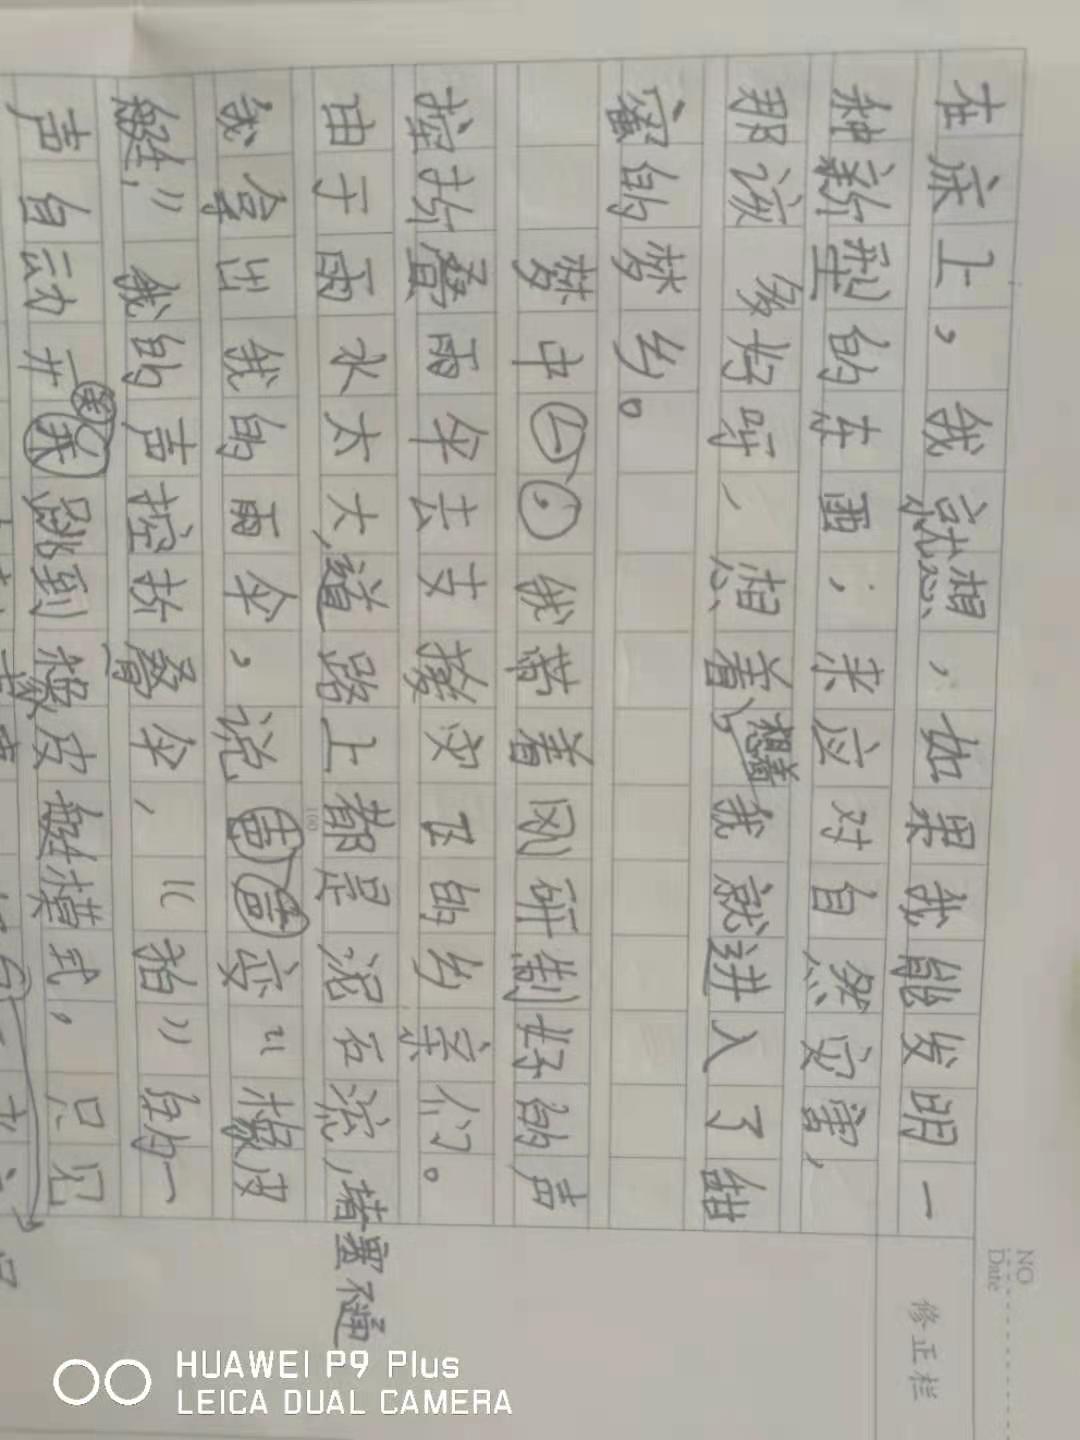 NO
Date
修正栏
在床上，我就想，如果我能发明一
种新型的东西，来应对自然灾害，
那该多好呀，想着想着我就进入了甜
蜜的梦乡。
梦中，我带着刚研制好的声
控折叠雨伞去支援灾区的乡亲们。
由于雨水太大，道路上都是泥石流，堵塞不通
我拿出我的雨伞，说 变“橡皮
艇，”我的声控折叠伞，“啪”的一
声自动开 跳到橡皮艇模式，只见
100
HUAWEI P9 Plus
LEICA DUAL CAMERA